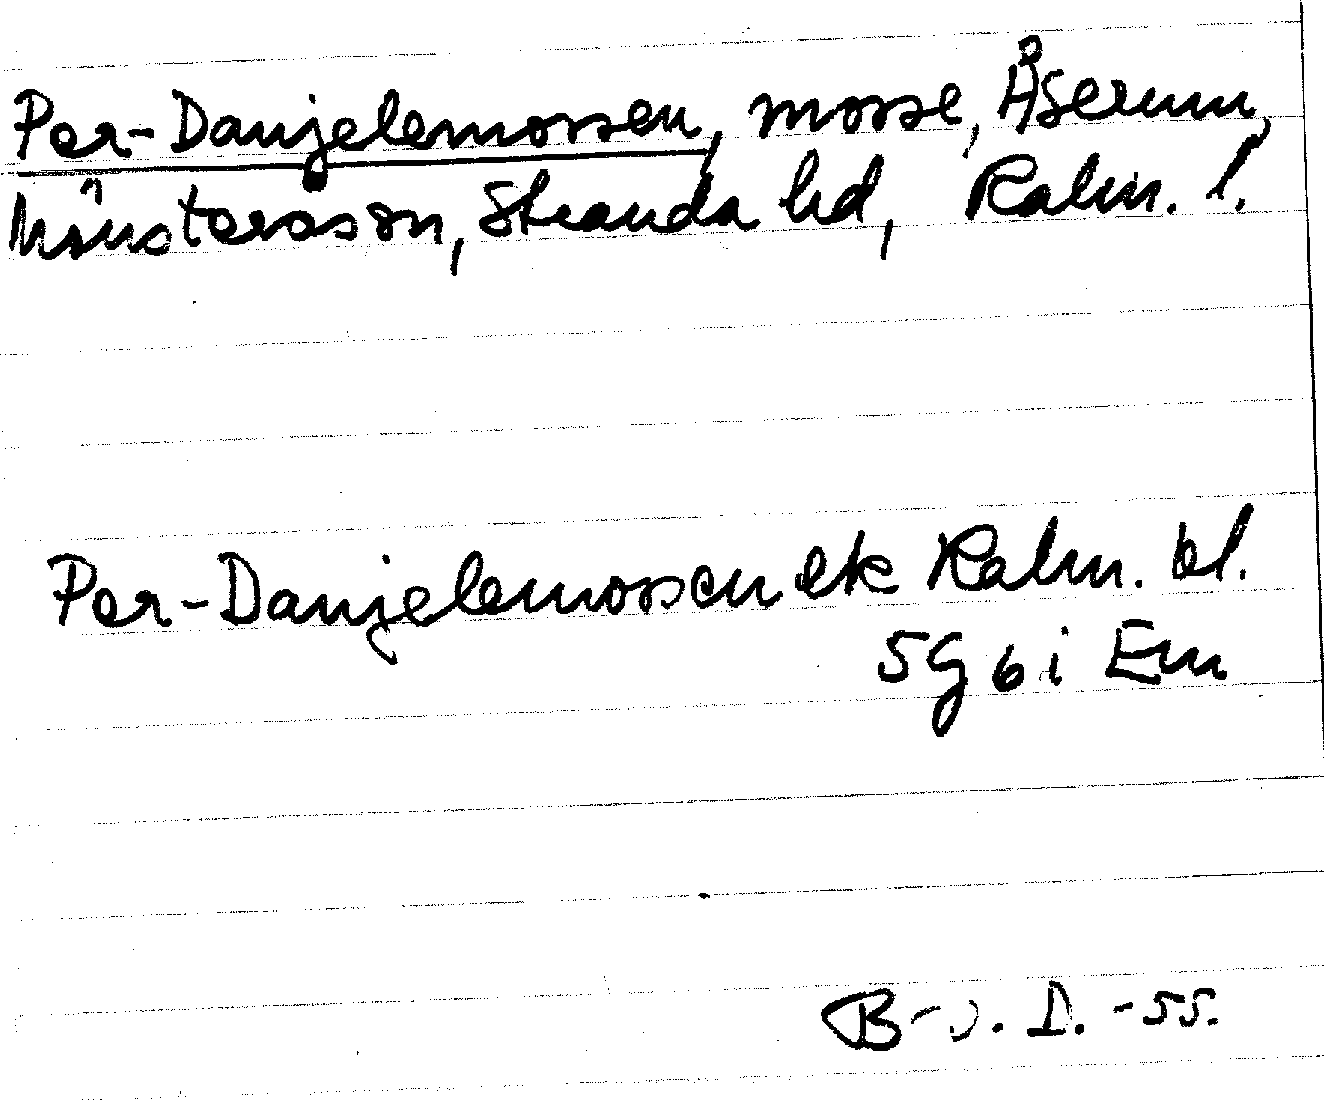 Per-Danjelemossen, mosse, Åserum,
Mönsterås sn, Stranda hd, Kalm. l.
Per-Danjelemossen ek Kalm. bl.
5G 6 i Em
B-J. D. -55.